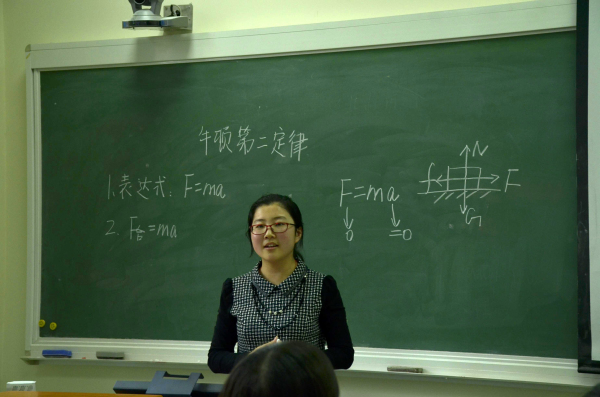 牛顿第二定律
1.表达式: F=ma
2. F合=ma
F=ma
0 =0
N
f F
G